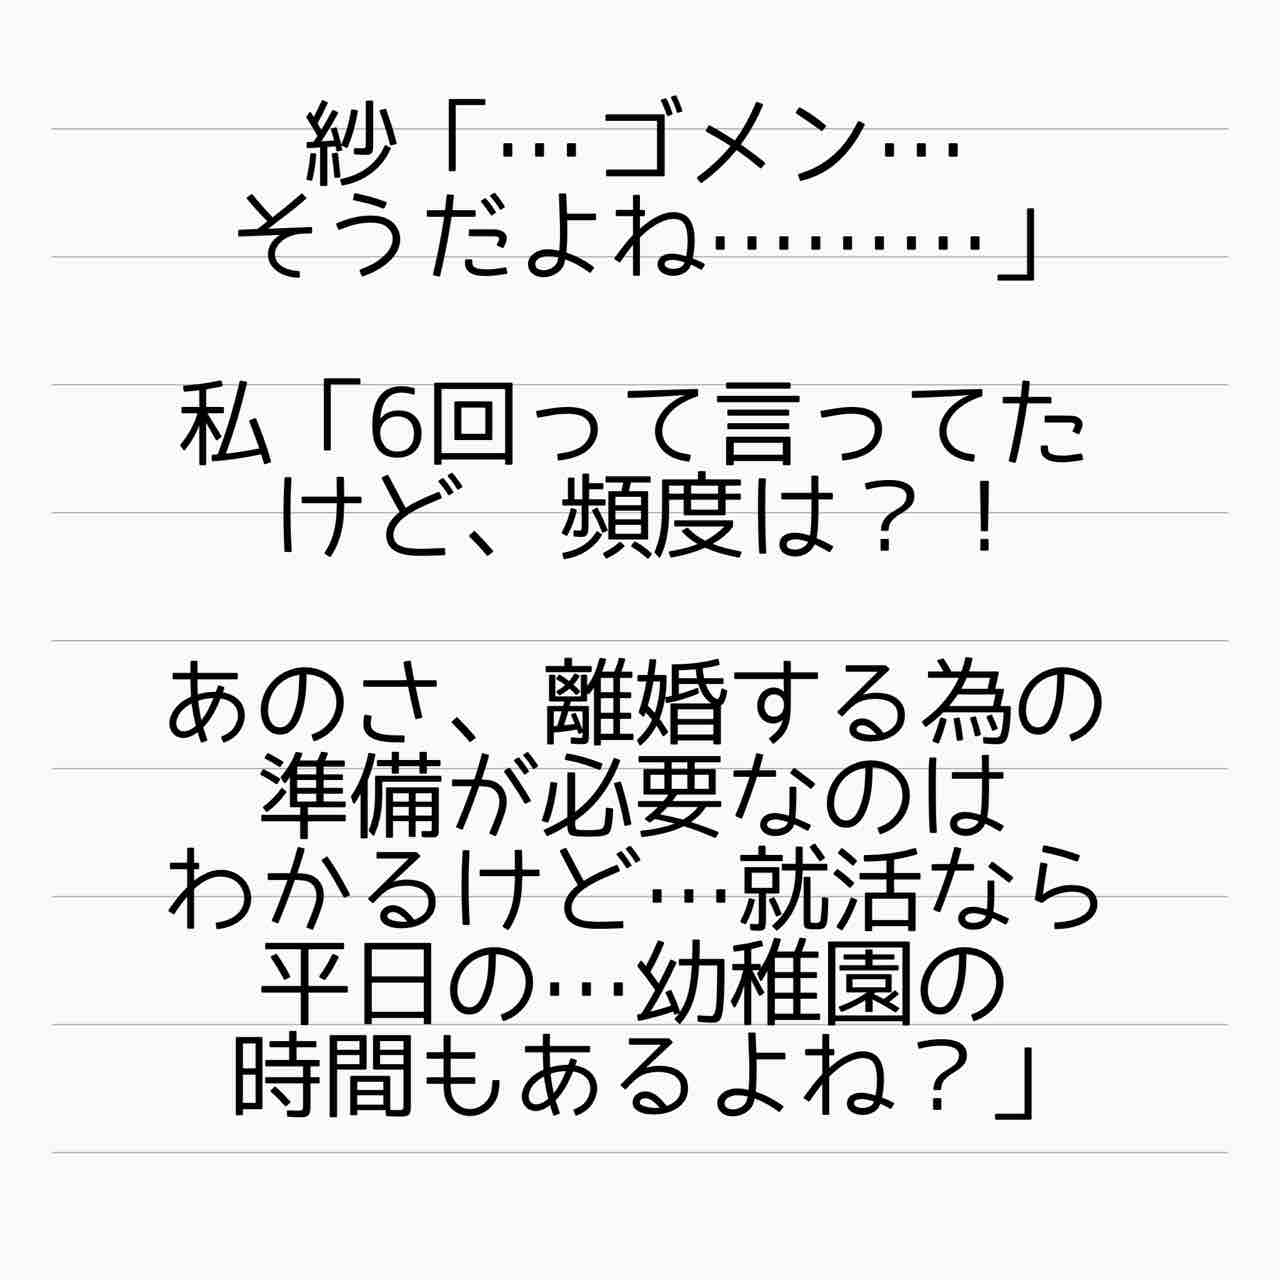 紗「…ゴメン…
そうだよね………」
私「6回って言ってた
けど、頻度は？！
あのさ、離婚する為の
準備が必要なのは
わかるけど…就活なら
平日の…幼稚園の
時間もあるよね？」